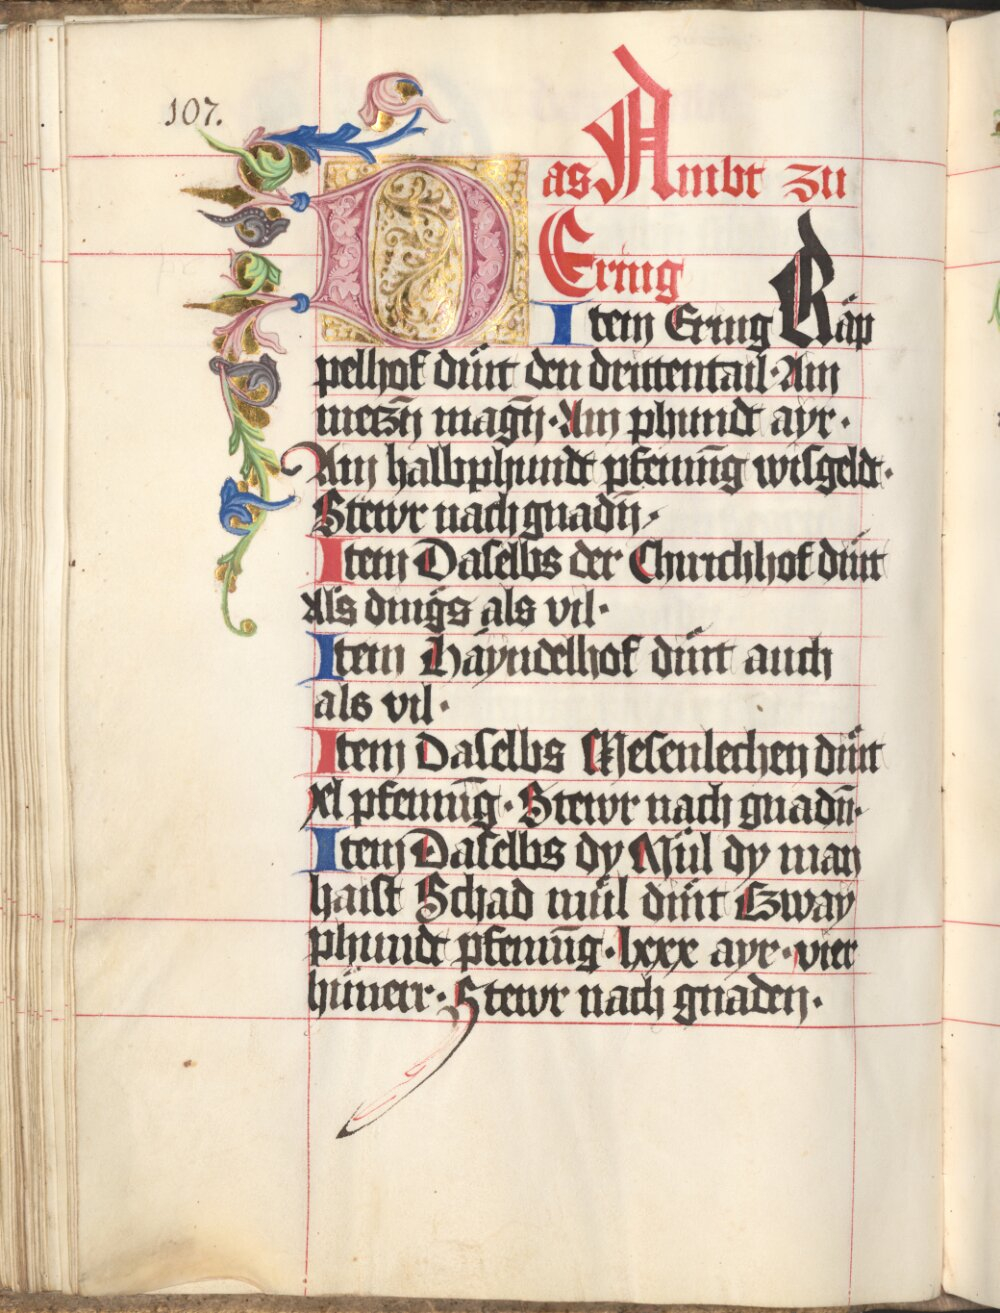 107.
Das Ambt zu
Ering
Item Ering Räp
pelhof diīt den drittentail · Ain
metzn̄ magn̄ · Ain phundt ayr ·
Ain halbphundt pfenning wisgeldt ·
Stewr nach gnadn̄ ·
Item Daselbs der Churchhof diīt
Als dings als vil ·
Item Häyndelhof diīt auch
als vil ·
Item Daselbs Mesenlechen diīt
xl pfenning · Stewr nach gnadn̄ ·
Item Daselbs dy Mül dy man
haist Schad mül diīt Czway
phundt pfenning · lxxx ayr · vier
hünerr · Stewr nach gnaden ·